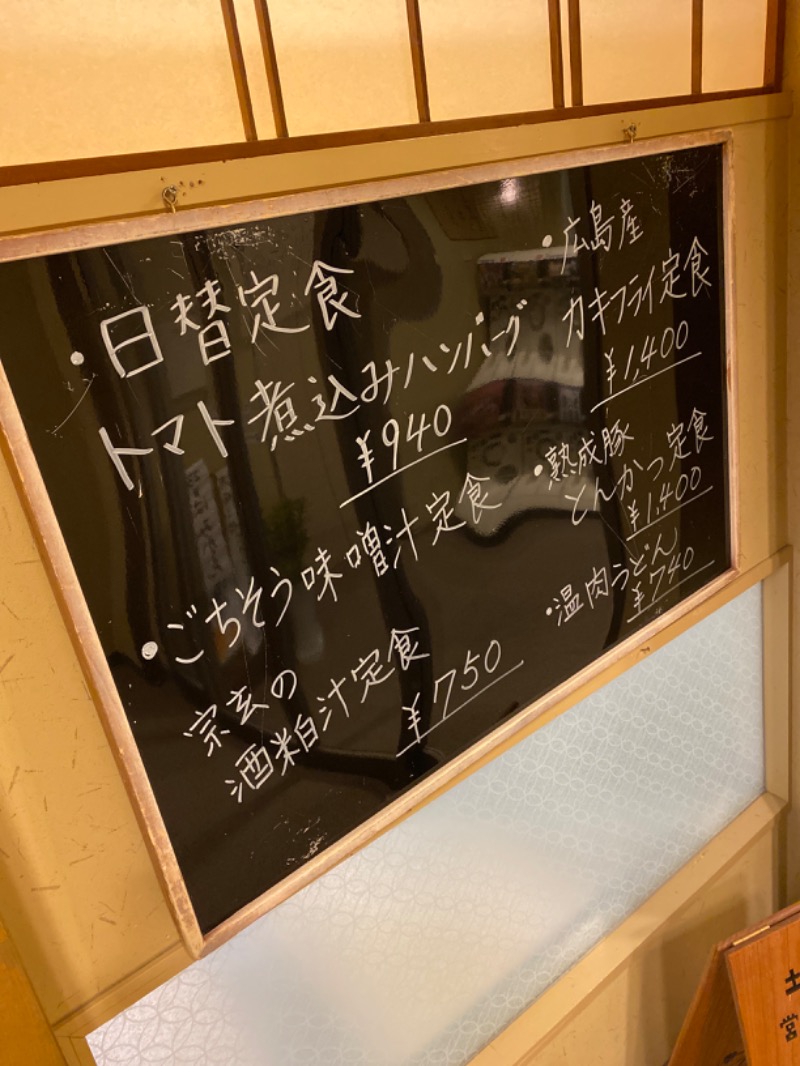 ・日替定食
トマト煮込みハンバーグ
¥940
・ごちそう味噌汁定食
宗玄の
酒粕汁定食
¥750
・広島産
カキフライ定食
¥1,400
・熟成豚
とんかつ定食
¥1,400
・温肉うどん
¥740
土
営